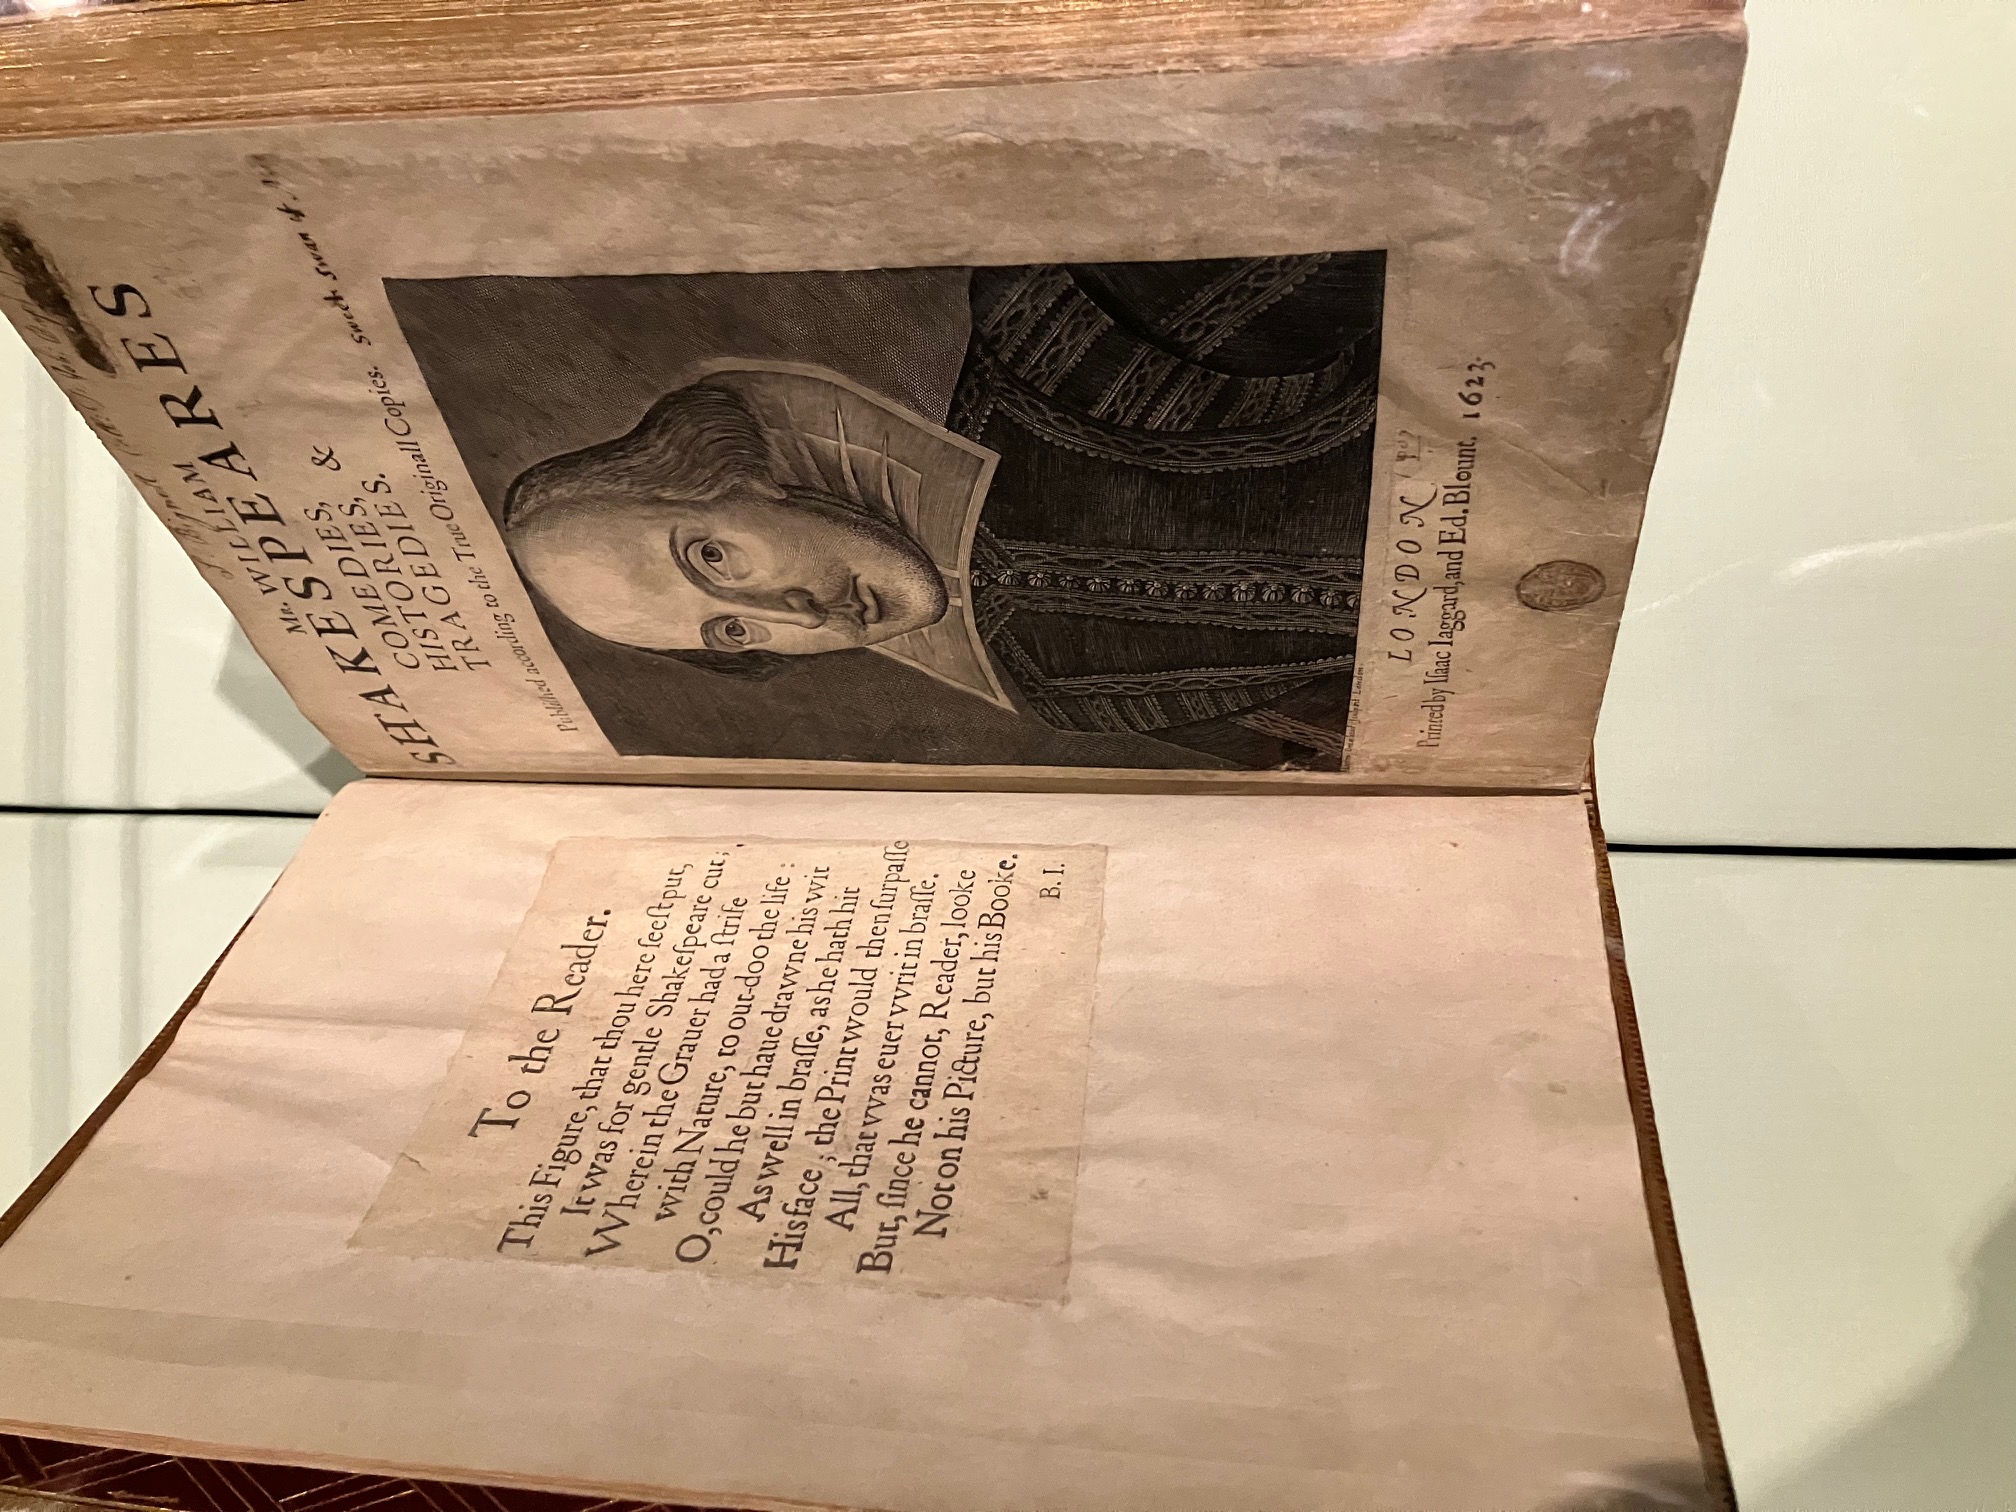 To the Reader.
This Figure, that thou here ſeeſt put,
It was for gentle Shakeſpeare cut;
Wherein the Grauer had a ſtrife
with Nature, to out-doo the life :
O, could he but haue drawne his wit
As well in braſſe, as he hath hit
His face ; the Print would then ſurpaſſe
All, that vvas euer vvrit in braſſe.
But, ſince he cannot, Reader, looke
Not on his Picture, but his Booke.
B. I.
Mr. WILLIAM
SHAKESPEARES
COMEDIES,
HISTORIES, &
TRAGEDIES.
Publiſhed according to the True Originall Copies.
Sweet Swan of
LONDON
Printed by Iſaac Iaggard, and Ed. Blount. 1623.